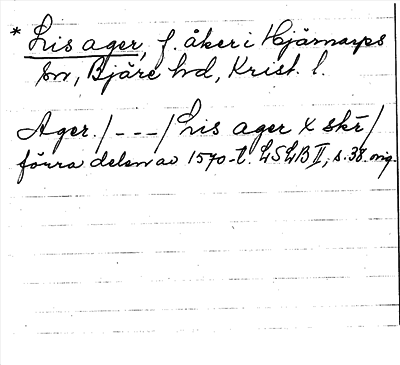 * Lis ager, f. åker i Hjärnarps
sn, Bjäre hd, Krist. l.
Ager. / - - - / Lis ager X skr /
förra delen av 1570-t. LSLB II, s. 38. orig.